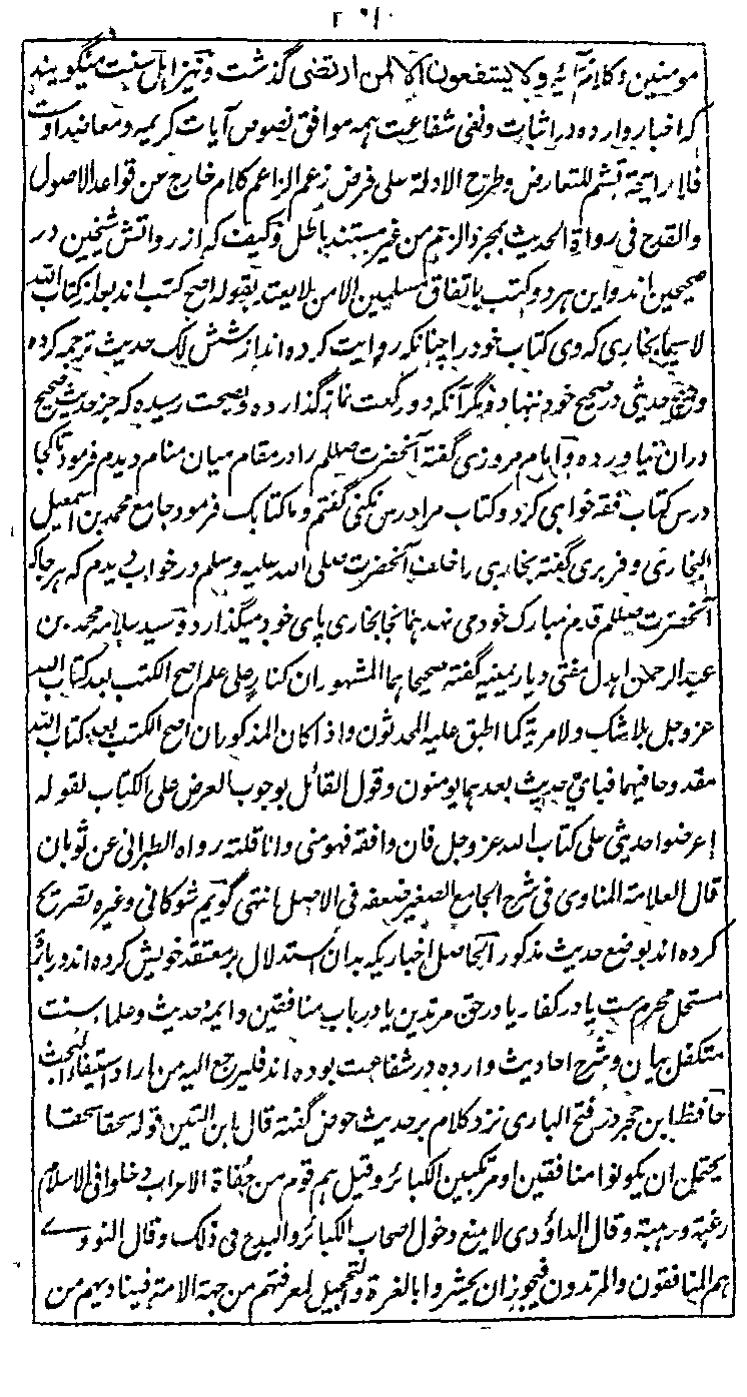 مومنین وکلام آئمہ ولا یشفعون الا لمن ارتضی گذشت و نیز اہل سنت میگویند
کہ اخبار واردہ در اثبات و نفی شفاعت ہمہ موافق نصوص آیات کریمہ و معانیہا است
فلا رایحۃ تشم للتعارض وطرح الادلۃ علی فرض زعم الزاعم کلام خارج عن قواعد الاصول
والقدح فی رواۃ الحدیث بمجرد الزعم من غیر مستند باطل وکیف کہ از رواتش شیخین در
صحیحین اند واین ہر دو کتب باتفاق مسلمین الا من لا یعتد بقولہ اصح کتب اند بعد از کتاب اللہ
لا سیما بخاری کہ وی کتاب خود را چنانکہ روایت کردہ اند از شش لک حدیث ترجمہ کردہ
وہیچ حدیثی در صحیح خود ننہاد مگر آنکہ دو رکعت نماز گذاردہ و بصحت رسیدہ کہ جز حدیث صحیح
دران نیاوردہ و امام مروزی گفتہ آنحضرت صلعم را در مقام میان منام دیدم فرمود تا کجا
درس کتاب فقہ خواہی کرد و کتاب مرا درس نکنی گفتم و ما کتابک فرمود جامع محمد بن اسمعیل
البخاری و فربری گفتہ بخاری را خلف آنحضرت صلی اللہ علیہ وسلم در خواب دیدم کہ ہر جا کہ
آنحضرت صلعم قدم مبارک خود می نہد ہمانجا بخاری پای خود میگذارد و سید علامہ محمد بن
عبد الرحمن اہدل مفتی دیار یمنیہ گفتہ صحیحاہما المشہوران کنار علی علم اصح الکتب بعد کتاب اللہ
عز وجل بلا شک ولا مریۃ کما اطبق علیہ المحدثون واذا کان المذکوران اصح الکتب بعد کتاب اللہ
مقدوحا فیہما فبای حدیث بعدہما یومنون وقول القائل بوجوب العرض علی الکتاب لقولہ
اعرضوا حدیثی علی کتاب اللہ عز وجل فان وافقہ فہو منی وانا قلتہ رواہ الطبرانی عن ثوبان
قال العلامۃ المناوی فی شرح الجامع الصغیر ضعفہ فی الاصل انتہی گویم شوکانی وغیرہ تصریح
کردہ اند بوضع حدیث مذکور الحاصل اخباریکہ بدان استدلال بر معتقد خویش کردہ اند در بارۂ
مستحل محرم ست یا در کفار یا در حق مرتدین یا در باب منافقین وائمۂ حدیث وعلماء سنت
متکفل بیان وشرح احادیث واردہ در شفاعت بودہ اند فلیرجع الیہ من اراد استیفاء البحث
حافظ ابن حجر در فتح الباری نزد کلام بر حدیث حوض گفتہ قال ابن التین قولہ سحقا سحقا
یحتمل ان یکونوا منافقین او مرتکبین الکبائر وقیل ہم قوم من جفاۃ الاعراب دخلوا فی الاسلام
رغبۃ ورہبۃ وقال الداؤدی لا یمنع دخول اصحاب الکبائر والبدع فی ذلک وقال النووے
ہم المنافقون والمرتدون فیجوز ان یحشروا بالغرۃ والتحجیل لمعرفتہم من جہۃ الامۃ فینادیہم من